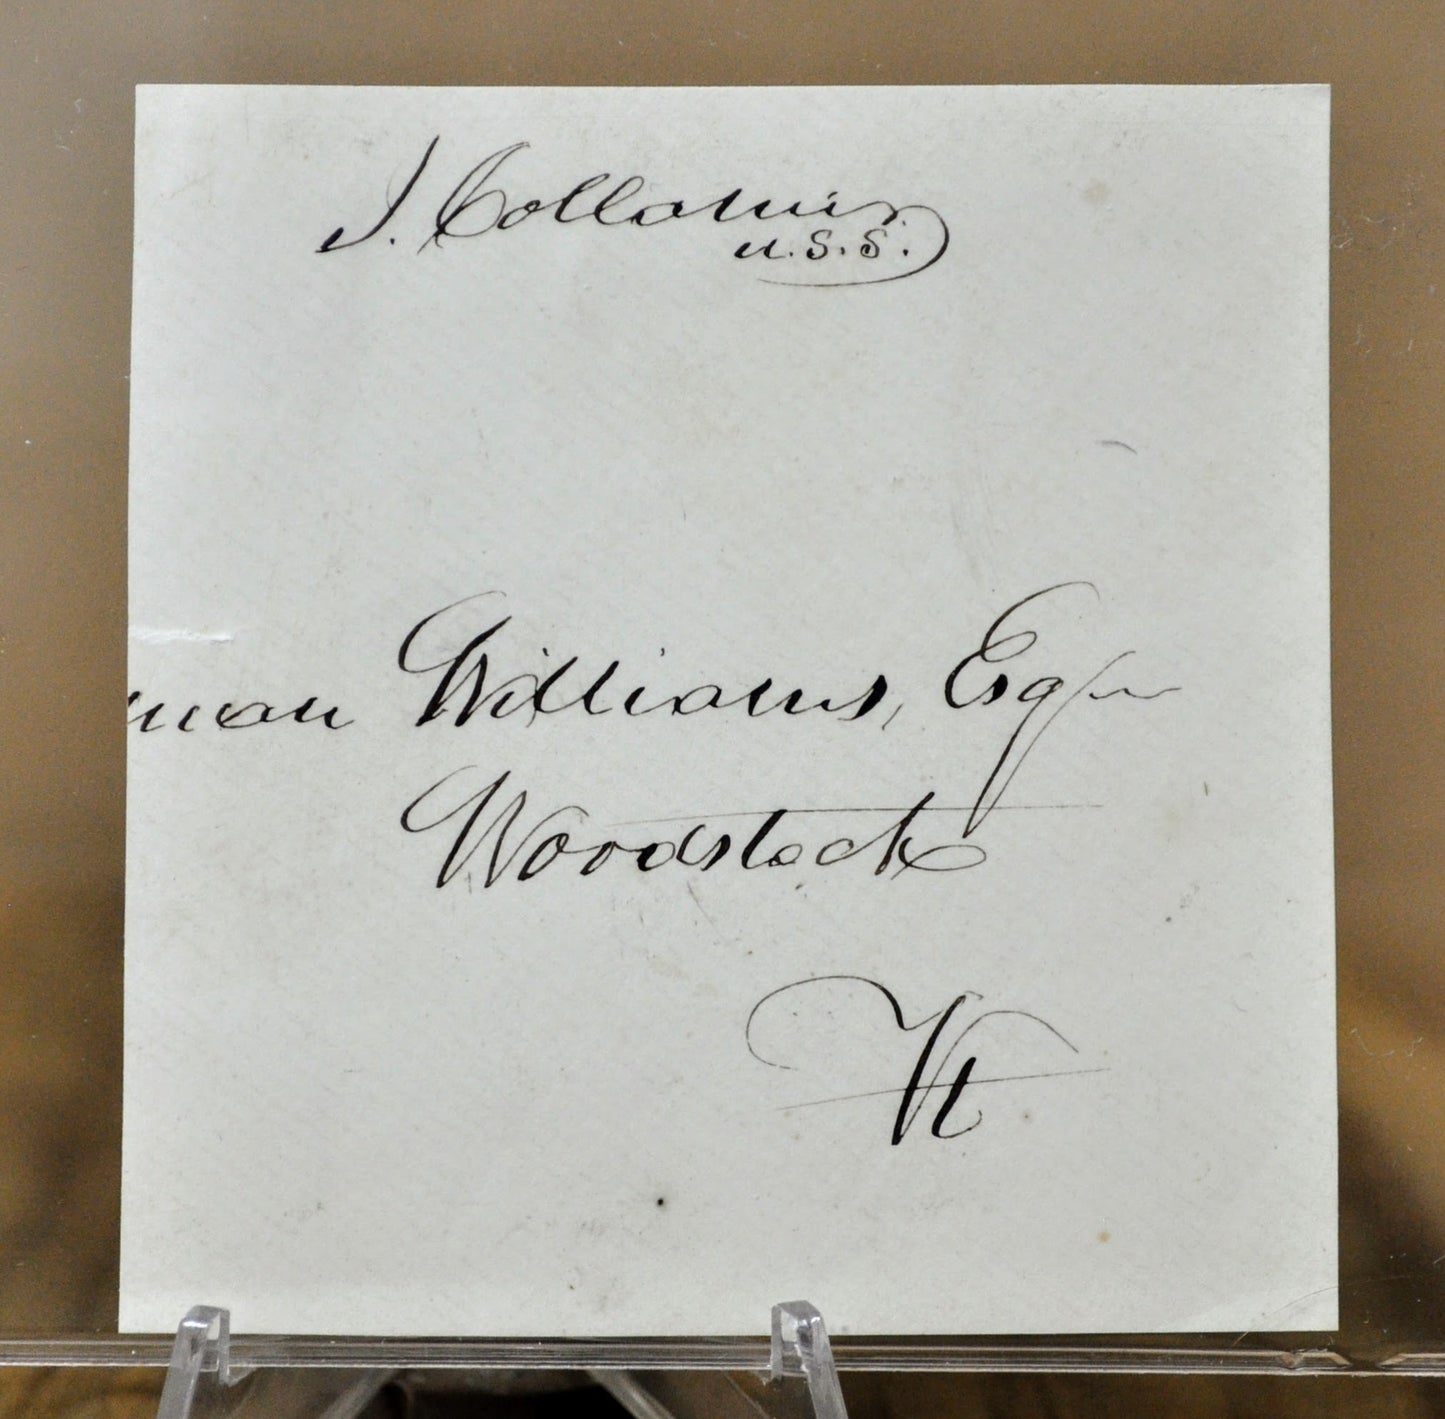 J. Collamer
U.S.S.
man Williams, Esqr
Woodstock
Vt